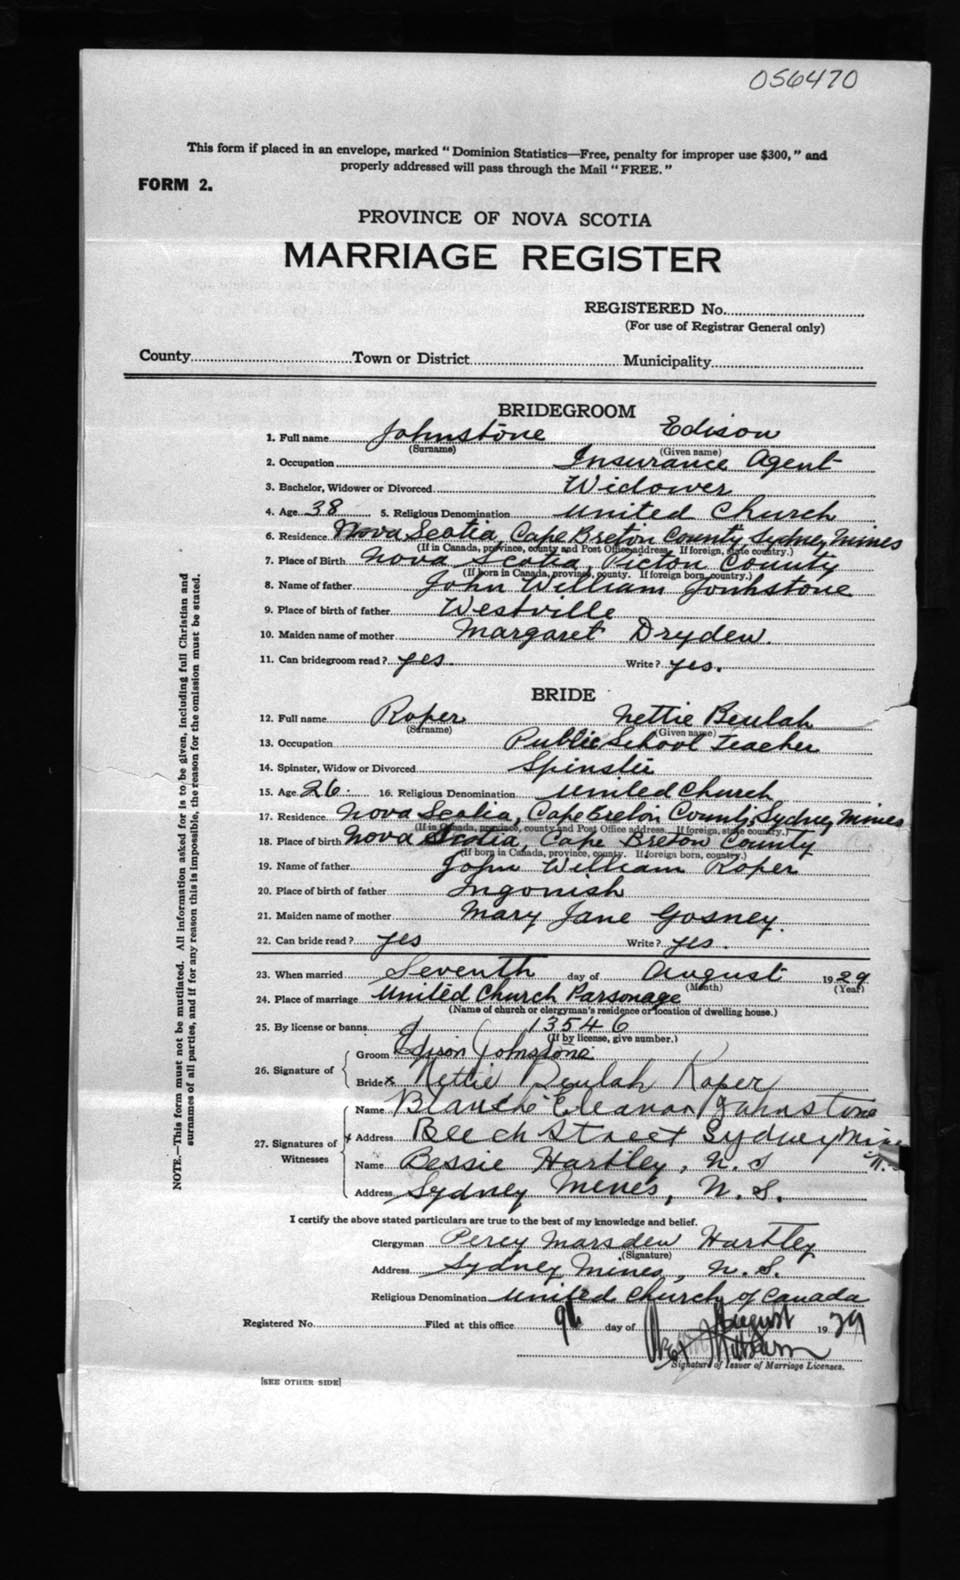 056470
This form if placed in an envelope, marked "Dominion Statistics—Free, penalty for improper use $300," and
properly addressed will pass through the Mail "FREE."
FORM 2.
PROVINCE OF NOVA SCOTIA
MARRIAGE REGISTER
REGISTERED No.
(For use of Registrar General only)
County Town or District Municipality
BRIDEGROOM
1. Full name Johnstone Edison
(Surname) (Given name)
2. Occupation Insurance Agent
3. Bachelor, Widower or Divorced Widower
4. Age 38 5. Religious Denomination United Church
6. Residence Nova Scotia, Cape Breton County, Sydney Mines
(If in Canada, province, county and Post Office address. If foreign, state country.)
7. Place of Birth Nova Scotia, Pictou County
(If born in Canada, province, county. If foreign born, country.)
8. Name of father John William Jonhstone
9. Place of birth of father Westville
10. Maiden name of mother Margaret Dryden.
11. Can bridegroom read? yes. Write? yes.
BRIDE
12. Full name Roper Nettie Beulah
(Surname) (Given name)
13. Occupation Public School Teacher
14. Spinster, Widow or Divorced Spinster
15. Age 26. 16. Religious Denomination United Church
17. Residence Nova Scotia, Cape Breton County, Sydney Mines
(If in Canada, province, county and Post Office address. If foreign, state country.)
18. Place of birth Nova Scotia, Cape Breton County
(If born in Canada, province, county. If foreign born, country.)
19. Name of father John William Roper
20. Place of birth of father Ingonish
21. Maiden name of mother Mary Jane Gosney.
22. Can bride read? yes Write? yes.
23. When married Seventh day of August 1929
(Month) (Year)
24. Place of marriage United Church Parsonage
(Name of church or clergyman's residence or location of dwelling house.)
25. By license or banns 13546
(If by license, give number.)
26. Signature of Groom Edison Johnstone
Bride x Nettie Beulah Roper
27. Signatures of Witnesses
Name Blanche Eleanor Johnstone
x Address Beech Street Sydney Mines
N.
Name Bessie Hartley, N. S
Address Sydney Mines, N. S.
I certify the above stated particulars are true to the best of my knowledge and belief.
Clergyman Percy Marsden Hartley
(Signature)
Address Sydney Mines, N. S.
Religious Denomination United Church of Canada
Registered No. Filed at this office 9th day of August 1929
Signature of Issuer of Marriage Licenses.
[SEE OTHER SIDE]
NOTE.—This form must not be mutilated. All information asked for is to be given, including full Christian and
surnames of all parties, and if for any reason this is impossible, the reason for the omission must be stated.